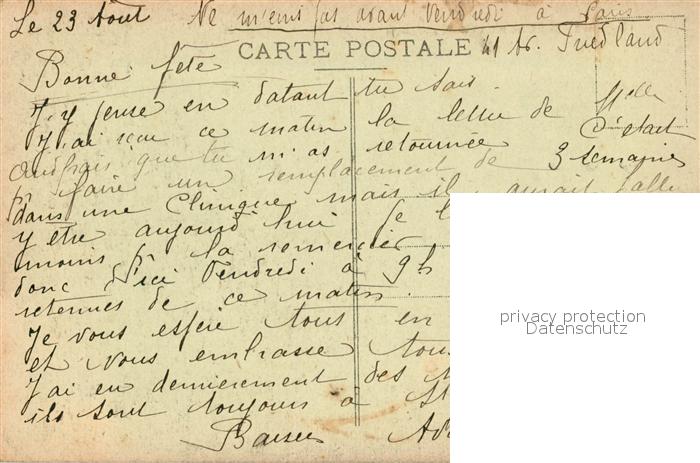 Le 23 Aout Ne m'écris pas avant Vendredi à Paris
CARTE POSTALE 41 Av. Friedland
Bonne fête
J'y pense en datant tu sais.
J'ai reçu ce matin la lettre de Melle
que tu m'as retournée C'était
pr faire un remplacement de 3 semaines
dans une Clinique mais il aurait fallu
y être aujourd'hui Je
moins pr la remercier
donc d'ici Vendredi à 9h
retenues de ce matin.
Je vous espère tous en
et vous embrasse
J'ai eu dernièrement des
ils sont toujours à St
Baisers
privacy protection
Datenschutz